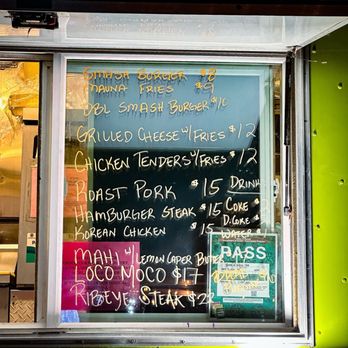 SMASH BURGER $8
MAUNA FRIES $9
DBL SMASH BURGER $10
GRILLED CHEESE W/ FRIES $12
CHICKEN TENDERS W/ FRIES $12
ROAST PORK $15
HAMBURGER STEAK $15
KOREAN CHICKEN $15
DRINK
COKE
D. COKE
WATER
MAHI W/ LEMON CAPER BUTTER
LOCO MOCO $17
RIBEYE STEAK $22
PASS